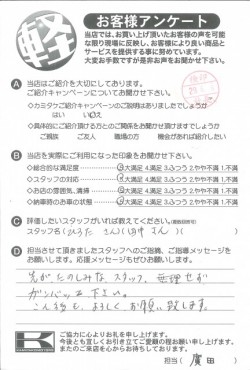 軽
お客様アンケート
当店では、お買い上げ頂いたお客様の声を可能
な限り現場に反映し、お客様により良い商品と
サービスを提供する事に努めています。
大変お手数ですが是非お声をお聞かせ下さい。
A 当店はご紹介を大切にしております。
ご紹介キャンペーンについてお聞かせ下さい。
◇カミタケご紹介キャンペーンのご説明はありましたでしょうか
はい いいえ
◇具体的にご紹介頂ける方とのご関係をお聞かせ頂けますでしょうか
ご親族 ご友人 職場の方 機会があればしたい
B 当店を実際にご利用になった印象をお聞かせ下さい。
◇総合的な満足度 5大満足 4.満足 3.ふつう 2.やや不満 1.不満
◇スタッフの対応 5大満足 4.満足 3.ふつう 2.やや不満 1.不満
◇お店の雰囲気、清掃 5大満足 4.満足 3.ふつう 2.やや不満 1.不満
◇納車時のお車の状態 5大満足 4.満足 3.ふつう 2.やや不満 1.不満
C 評価したいスタッフがいれば教えてください。(複数回答可)
スタッフ名(ひろた さん)(田中 さん)( )
D 担当させて頂きましたスタッフへのご指摘、ご指導メッセージを
お願いします。応援メッセージもぜひお願いします。
先が、たのしみな、スタッフ、無理せず
ガンバッテ下さい。
こん後も、よろしくお願い致します。
K
ご協力に心よりお礼を申し上げます。
今後とも宜しくお引き立てご愛顧の程お願い申し上げます。
またのご来店を心からお待ちしております。
担当( 廣田 )